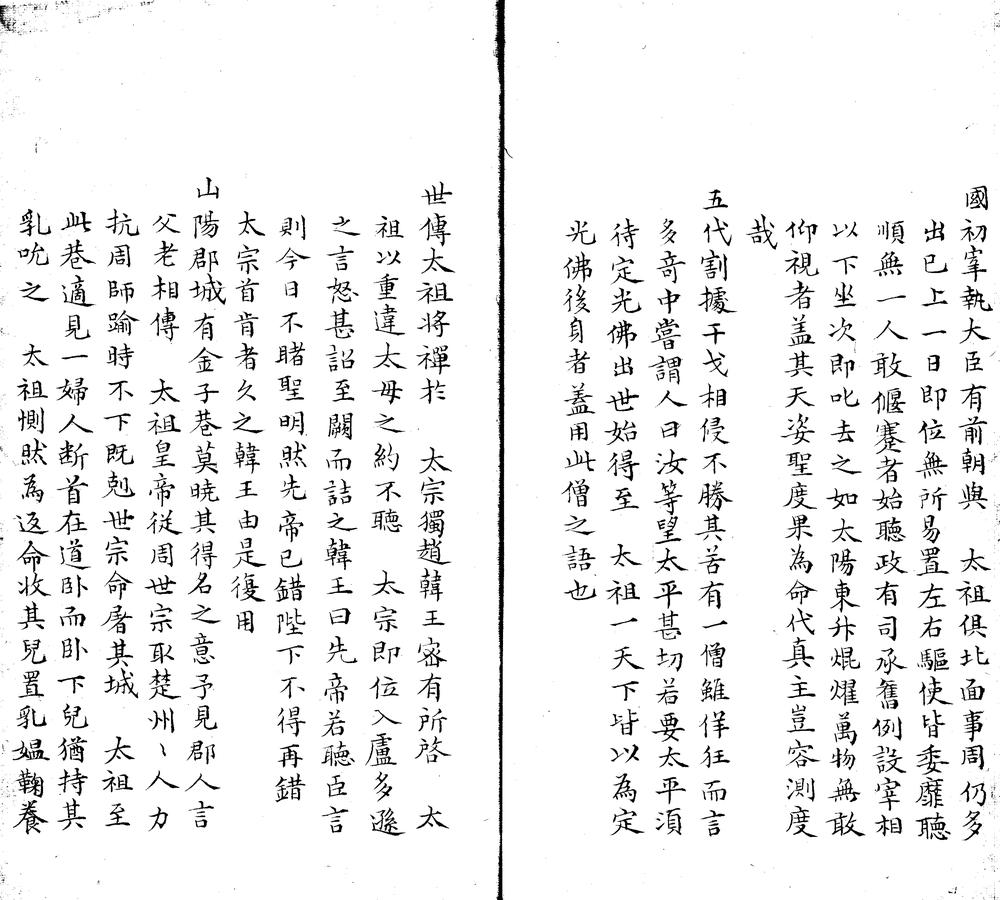 國初宰執大臣有前朝與　太祖俱北面事周仍多
出已上一日即位無所易置左右驅使皆委靡聽
順無一人敢偃蹇者始聽政有司承舊例設宰相
以下坐次即叱去之如太陽東升焜燿萬物無敢
仰視者盖其天姿聖度果為命代真主豈容測度
哉
五代割據干戈相侵不勝其苦有一僧雖佯狂而言
多竒中嘗謂人曰汝等望太平甚切若要太平湏
待定光佛出世始得至　太祖一天下皆以為定
光佛後身者蓋用此僧之語也
世傳太祖将禪於　太宗獨趙韓王宻有所啓　太
祖以重違太母之約不聽　太宗即位入盧多遜
之言怒甚詔至闕而詰之韓王曰先帝若聽臣言
則今日不睹聖明然先帝已錯陛下不得再錯
太宗首肯者久之韓王由是復用
山陽郡城有金子巷莫曉其得名之意予見郡人言
父老相傳　太祖皇帝從周世宗取楚州〻人力
抗周師踰時不下既剋世宗命屠其城　太祖至
此巷適見一婦人断首在道卧而卧下兒猶持其
乳吮之　太祖惻然為返命收其兒置乳媪鞠養